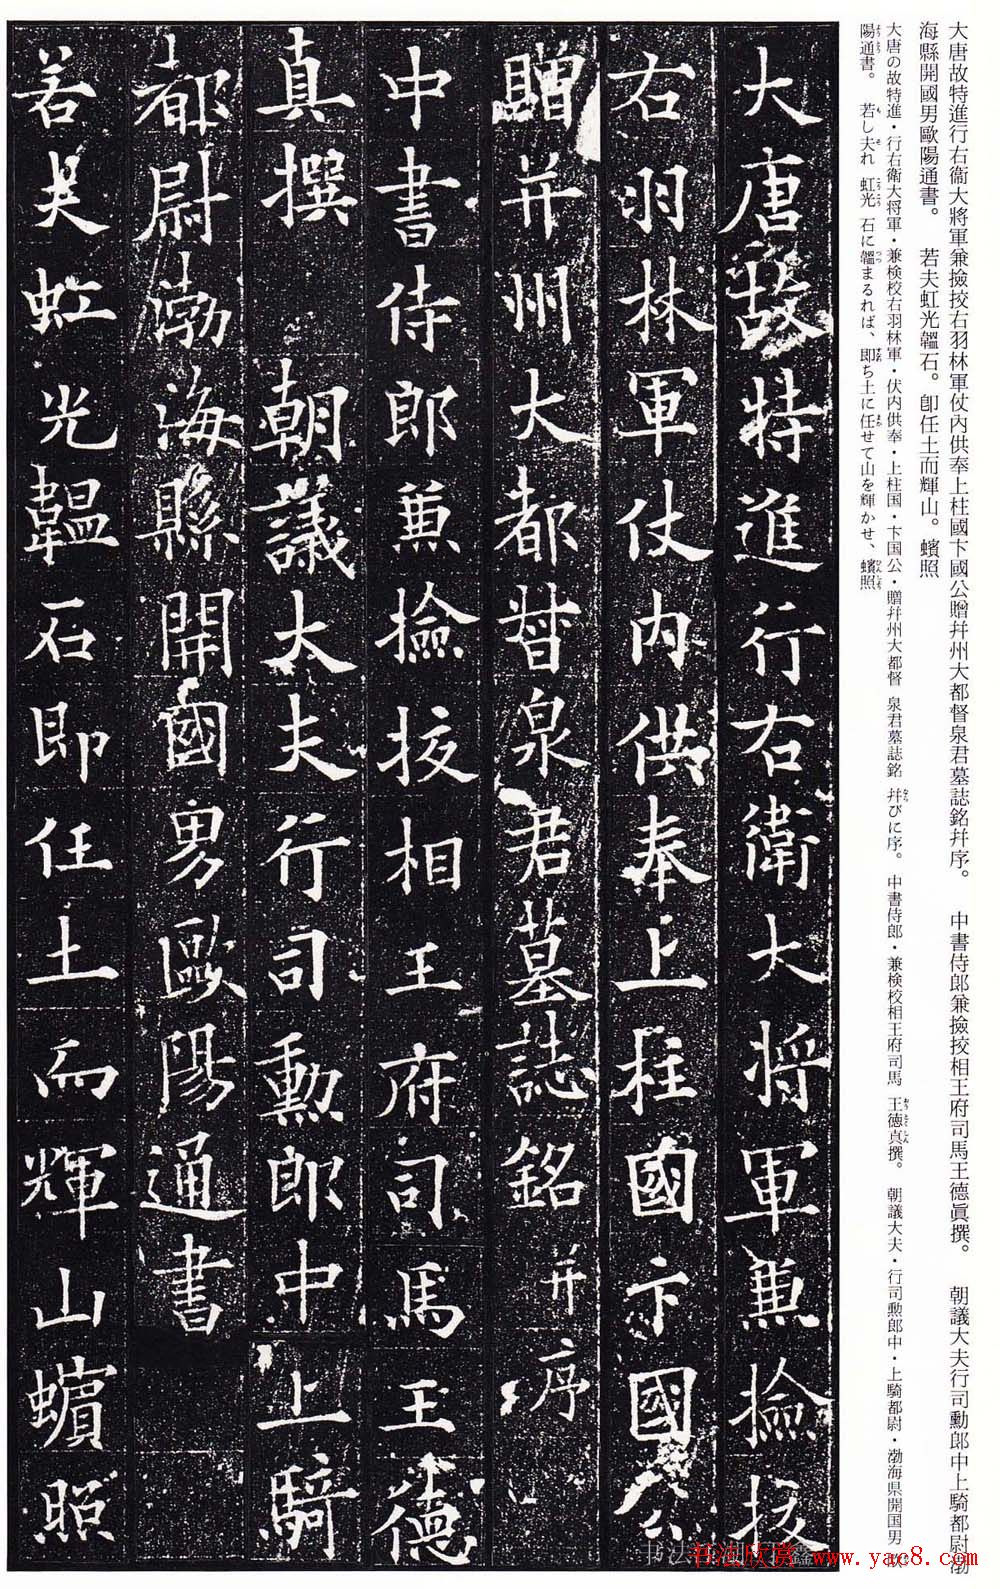 大唐故特進行右衞大將軍兼撿挍右羽林軍仗内供奉上柱國卞國公贈幷州大都督泉君墓誌銘幷序。 中書侍郎兼撿挍相王府司馬王德眞撰。 朝議大夫行司勳郎中上騎都尉渤
海縣開國男歐陽通書。 若夫虹光韞石。卽任土而輝山。蠙照
大唐の故特進・行右衛大将軍・兼検校右羽林軍・伏内供奉・上柱国・卞国公・贈幷州大都督 泉君墓誌銘 幷びに序。 中書侍郎・兼検校相王府司馬 王徳貞撰。 朝議大夫・行司勲郎中・上騎都尉・渤海県開国男 欧
陽通書。 若し夫れ 虹光 石に韞まるれば、即ち土に任せて山を輝かせ、蠙照
大唐故特進行右衛大將軍兼撿挍
右羽林軍仗内供奉上柱國卞國公
贈并州大都督泉君墓誌銘并序
中書侍郎兼撿挍相王府司馬王德
真撰 朝議大夫行司勳郎中上騎
都尉渤海縣開國男歐陽通書
若夫虹光韞石即任土而輝山蠙照
书法欣赏 www.yac8.com